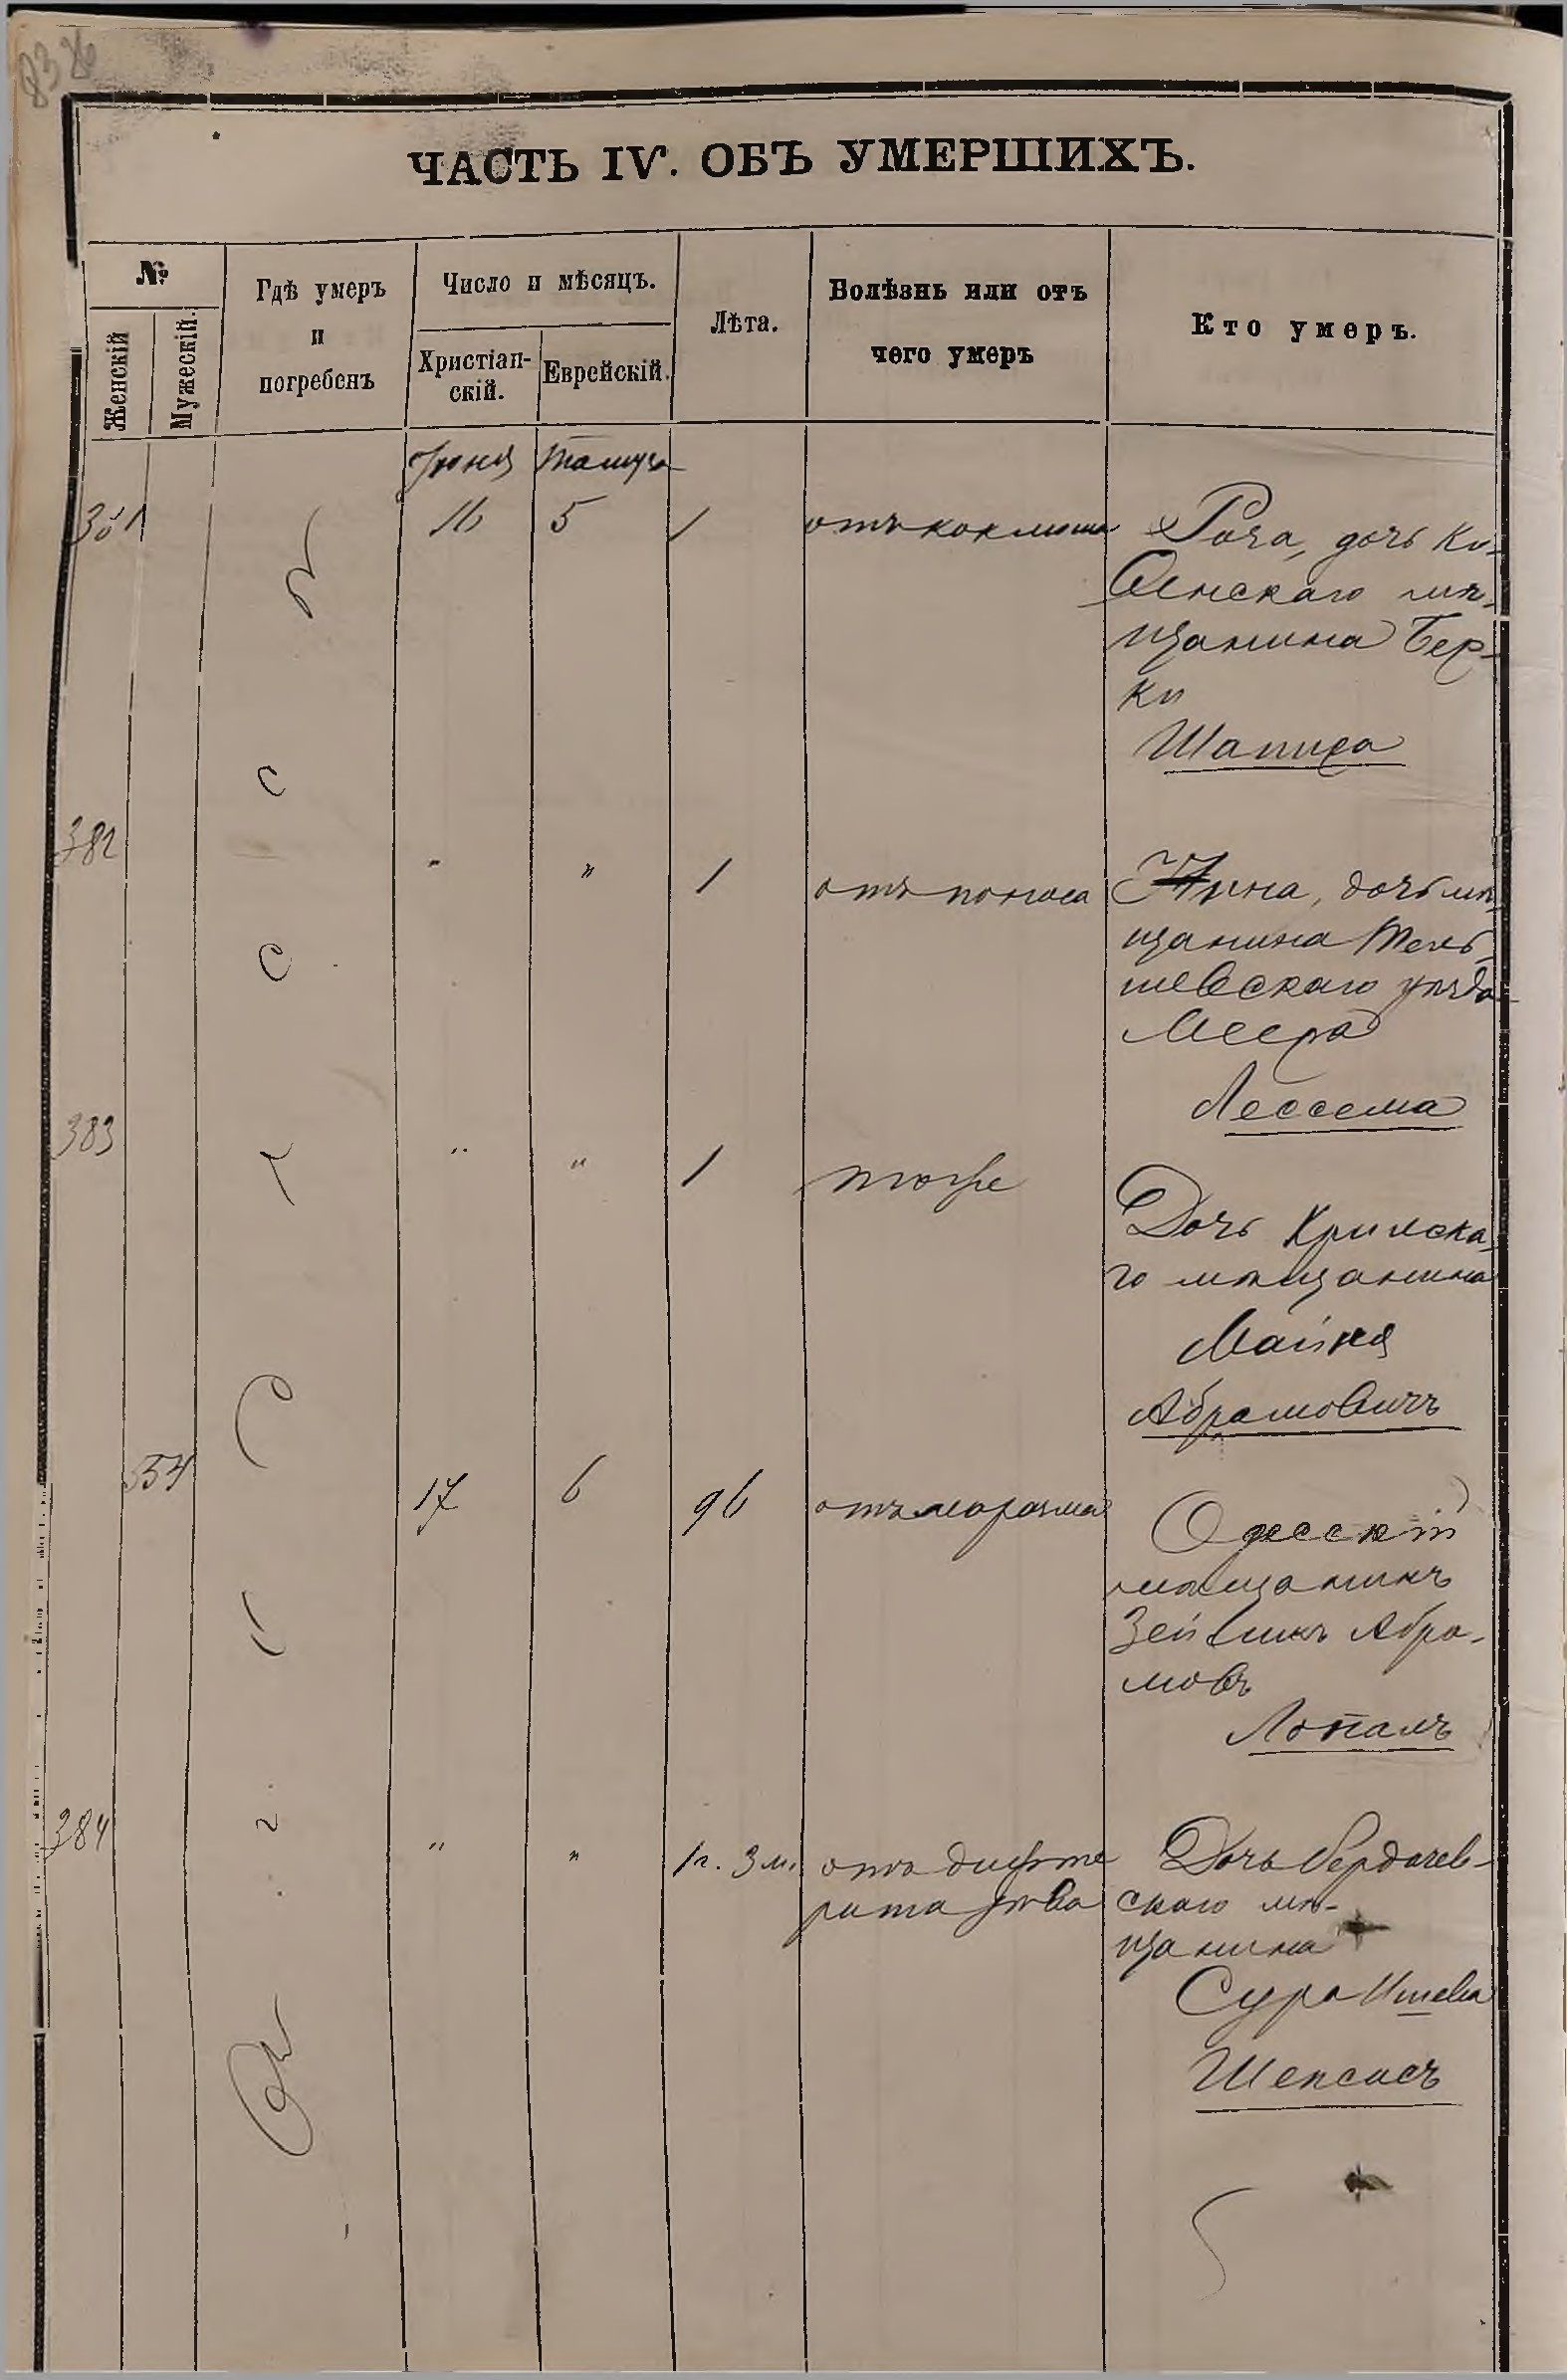 8326
ЧАСТЬ IV. ОБЪ УМЕРШИХЪ.
№
Женскій
Мужескій.
Гдѣ умеръ
и
погребенъ
Число и мѣсяцъ.
Христіан-
скій.
Еврейскій.
Лѣта.
Болѣзнь или отъ
чего умеръ
Кто умеръ.
Іюня Тамуза
381 16 5 1 отъ коклюша Роза, дочь Ко-
венскаго мѣ-
щанина Бер-
ки
Шапира
382 " " 1 отъ поноса Нина, дочь мѣ-
щанина Тель-
шевскаго уѣзда
Меера
Лессема
383 " " 1 тоже Дочь Крымска-
го мѣщанина
Майня
Абрамовичъ
554 17 6 96 отъ маразма Одесскій
мѣщанинъ
Зейвинъ Абра-
мовъ
Лопалъ
384 " " 1 г. 3 м. отъ дифте
рита зѣва
Дочь Бердичев-
скаго мѣ-
щанина
Сура
Шепсисъ
Одесса